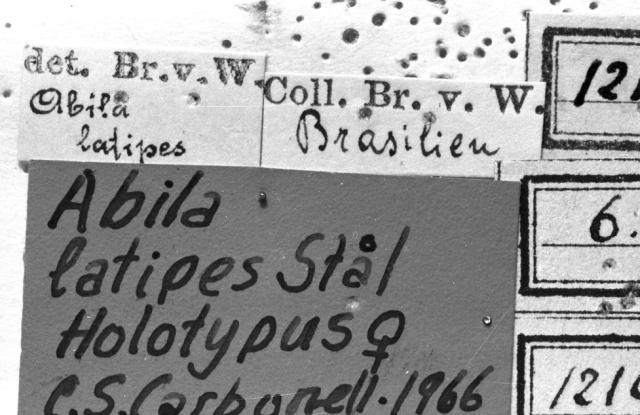 det. Br. v. W.
Abila
latipes
Coll. Br. v. W.
Brasilien
Abila
latipes Stål
Holotypus ♀
C.S. Carbonell. 1966
121
6.
121